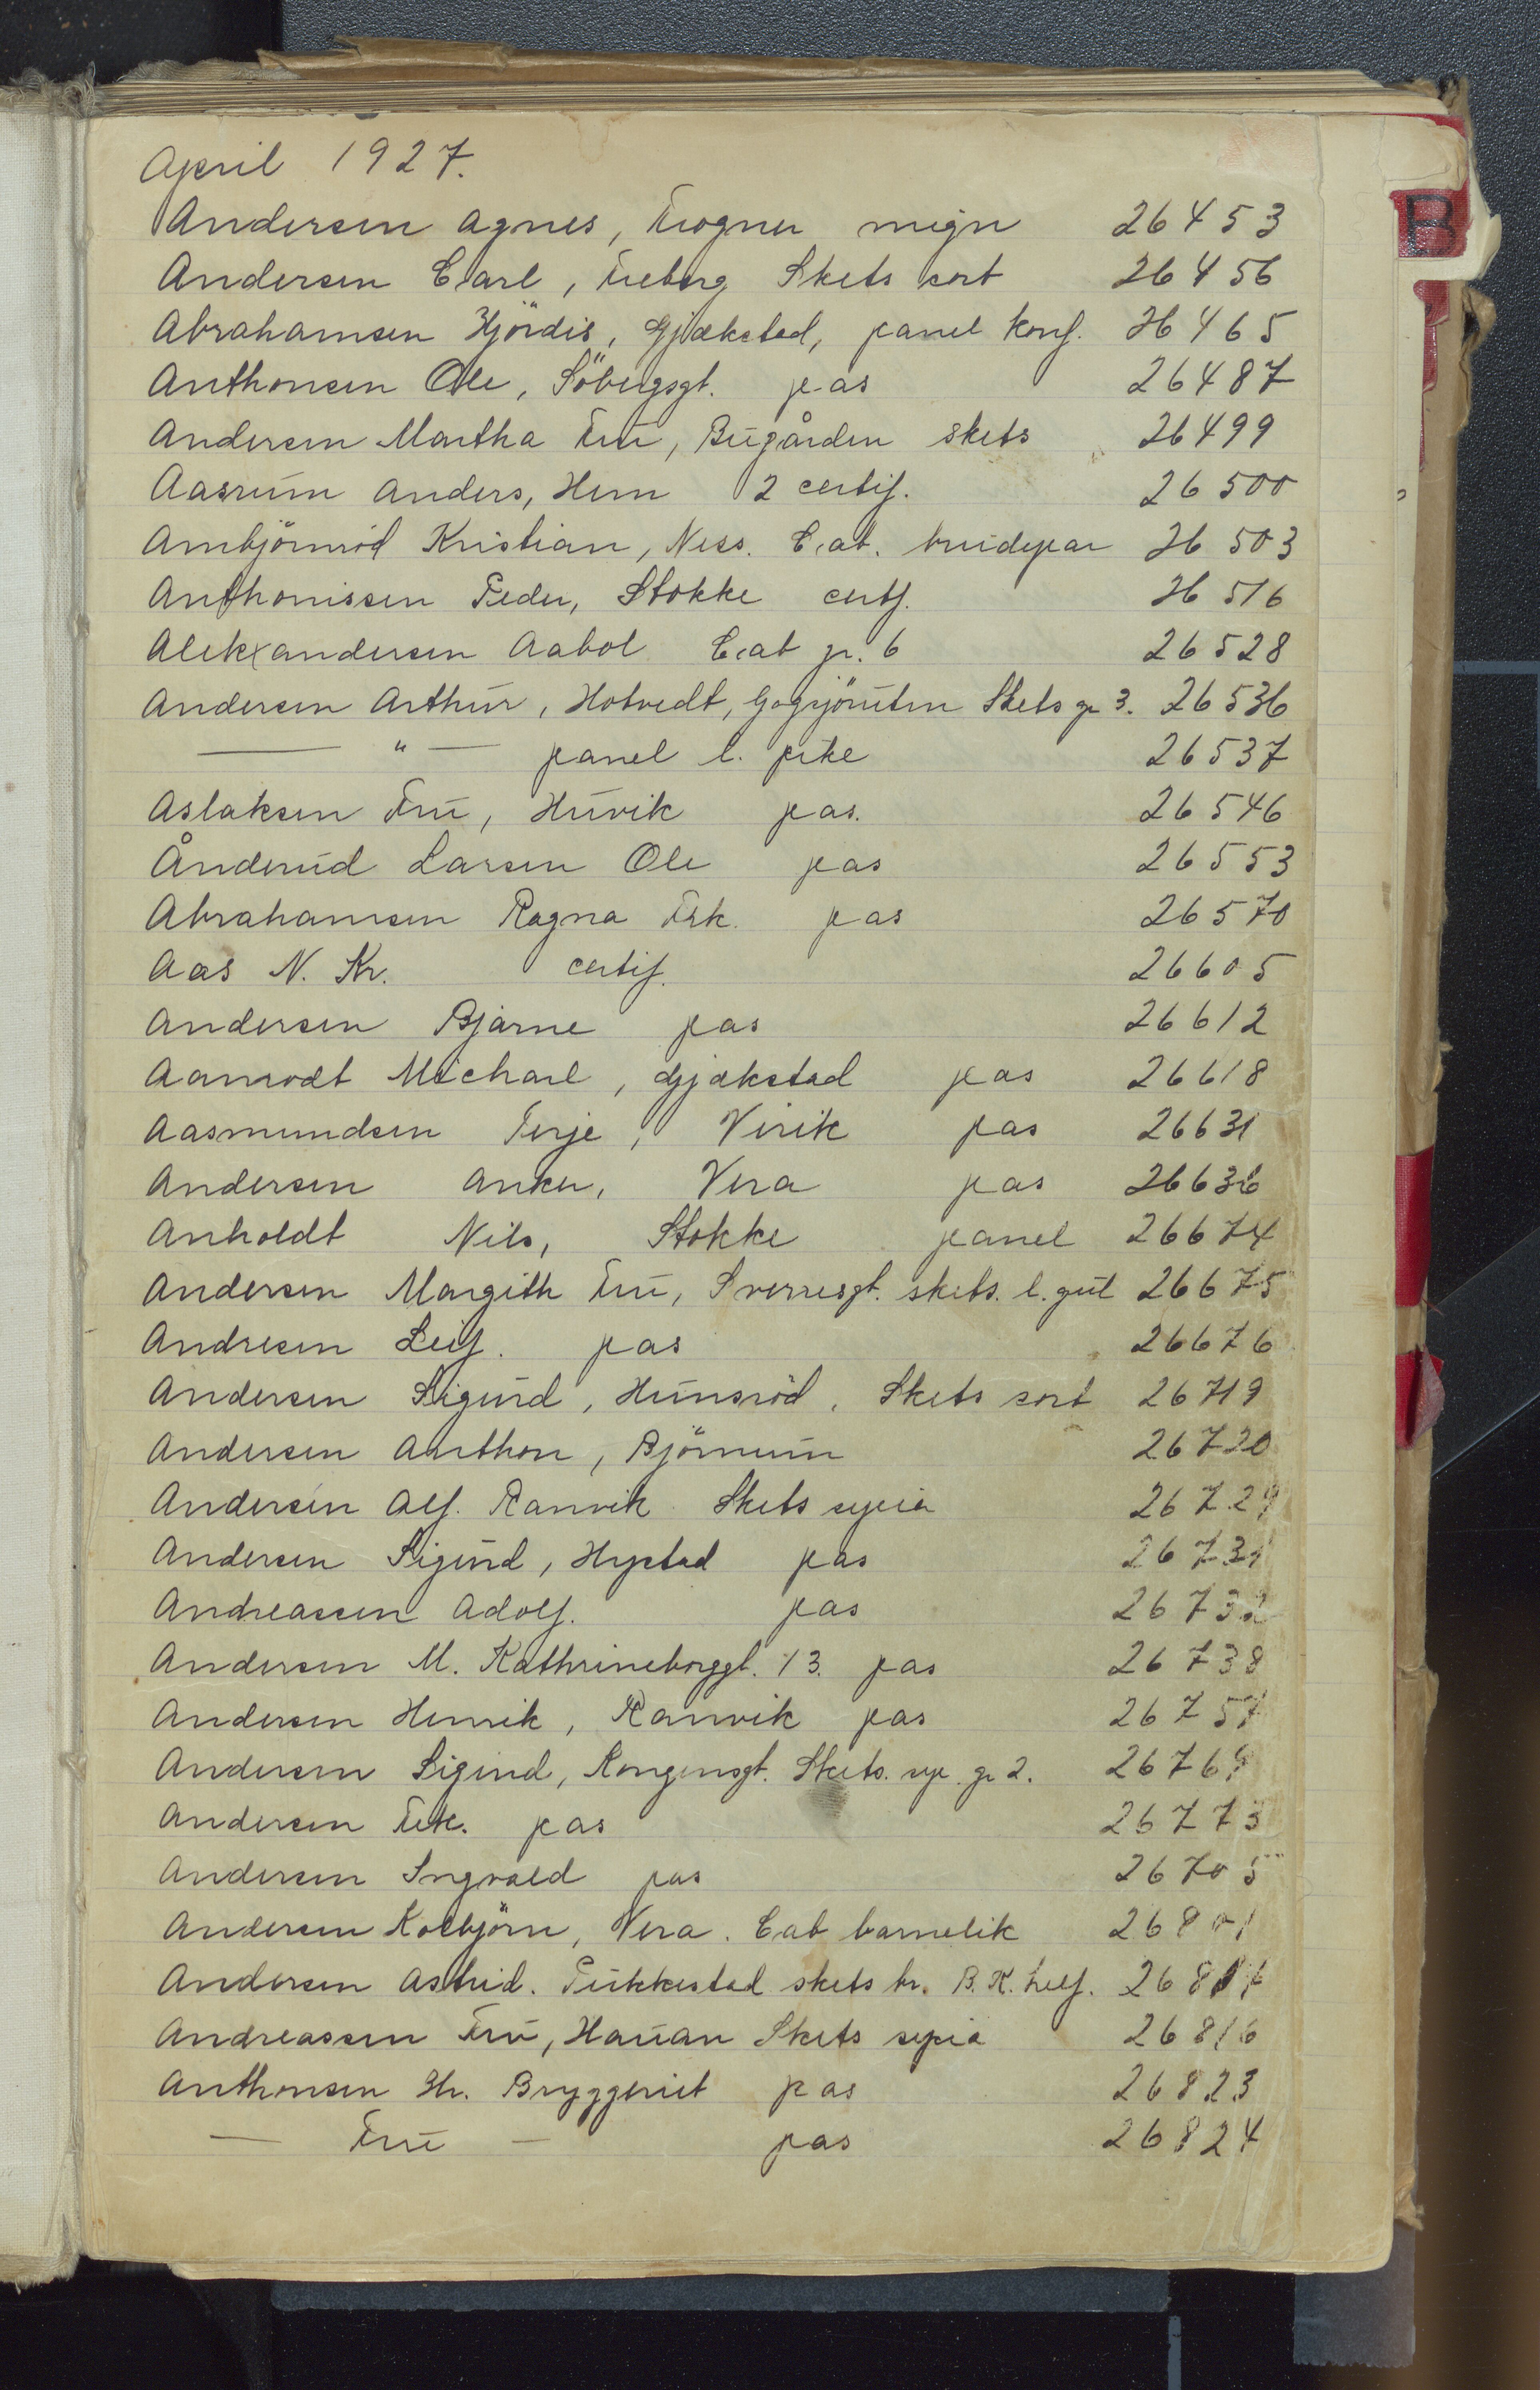 April 1927.
Andersen Agnes, Frogner mign 26453
Andersen Carl, Freberg Skets sort 26456
Abrahamsen Hjördis, Gjekstad, panel konf. 26465
Anthonsen Ole, Söbergsgt. pas 26487
Andersen Martha Fru, Bugården skets 26499
Aasrum Anders, Hem 2 certif. 26500
Arnbjörnröd Kristian, Ness. Cab. brudepar 26503
Anthonissen Peder, Stokke certf. 26516
Alekxandersen Aabol Cab gr. 6 26528
Andersen Arthur, Hotvedt, Skets gr 3. 26536
— " — panel l. pike 26537
Aslaksen Fru, Huvik pas. 26546
Ånderud Larsen Ole pas 26553
Abrahamsen Ragna Frk. pas 26570
Aas N. Kr. certif. 26605
Andersen Bjarne pas 26612
Aanrodt Michael, Gjekstad pas 26618
Aasmundsen Terje, Virik pas 26631
Andersen Anker, Vera pas 26636
Anholdt Nils, Stokke panel 26674
Andersen Margith Fru, Sverresgt. skets. l. gut 26675
Andresen Leif. pas 26676
Andersen Sigurd, Hunsröd, Skets sort 26719
Andersen Anthon, Björnum 26720
Andersen Alf. Ranvik Skets sepia 26729
Andersen Sigurd, Hystad pas 26731
Andreassen Adolf. pas 26732
Andersen M. Kathrineborggt. 13. pas 26738
Andersen Henrik, Ranvik pas 26757
Andersen Sigurd, Kongensgt. Skets. sep. gr 2. 26769
Andersen Frk. pas 26773
Andersen Ingvald pas 26705
Andersen Kolbjörn, Vera. Cab barnelik 26801
Andersen Astrid. Pukkestad skets br. B. K. helf.
Andreassen Fru, Hauan Skets sepia 26816
Anthonsen Hr. Bryggeriet pas 26823
— Fru — pas 26824
B